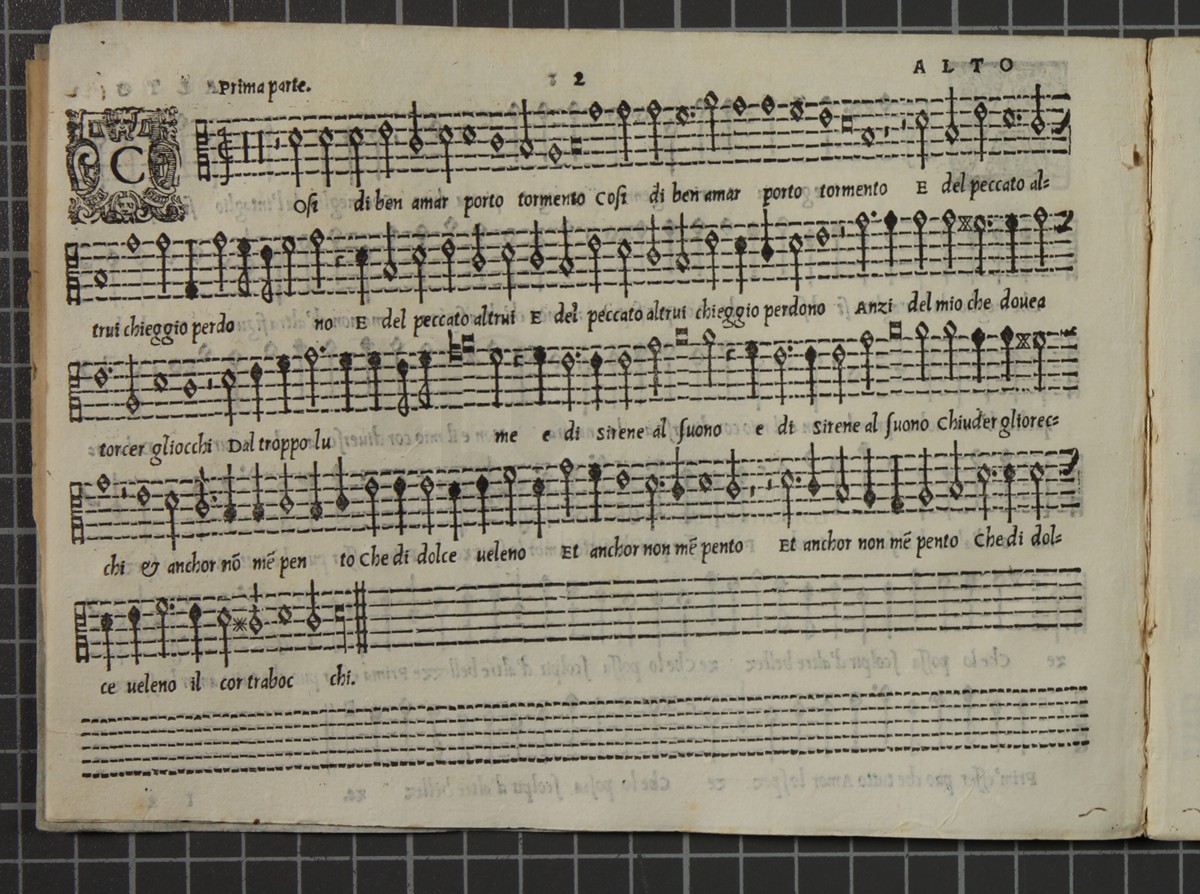 Prima parte. 2 ALTO
C
Osi di ben amar porto tormento Cosi di ben amar porto tormento E del peccato al=
trui chieggio perdo no E del peccato altrui E del peccato altrui chieggio perdono Anzi del mio che douea
torcer gliocchi Dal troppo lu me e di Sirene al suono e di Sirene al suono Chiuder gliorec=
chi & anchor nõ mẽ pen to Che di dolce ueleno Et anchor non mẽ pento Et anchor non mẽ pento Che di dol=
ce ueleno il cor traboc chi.